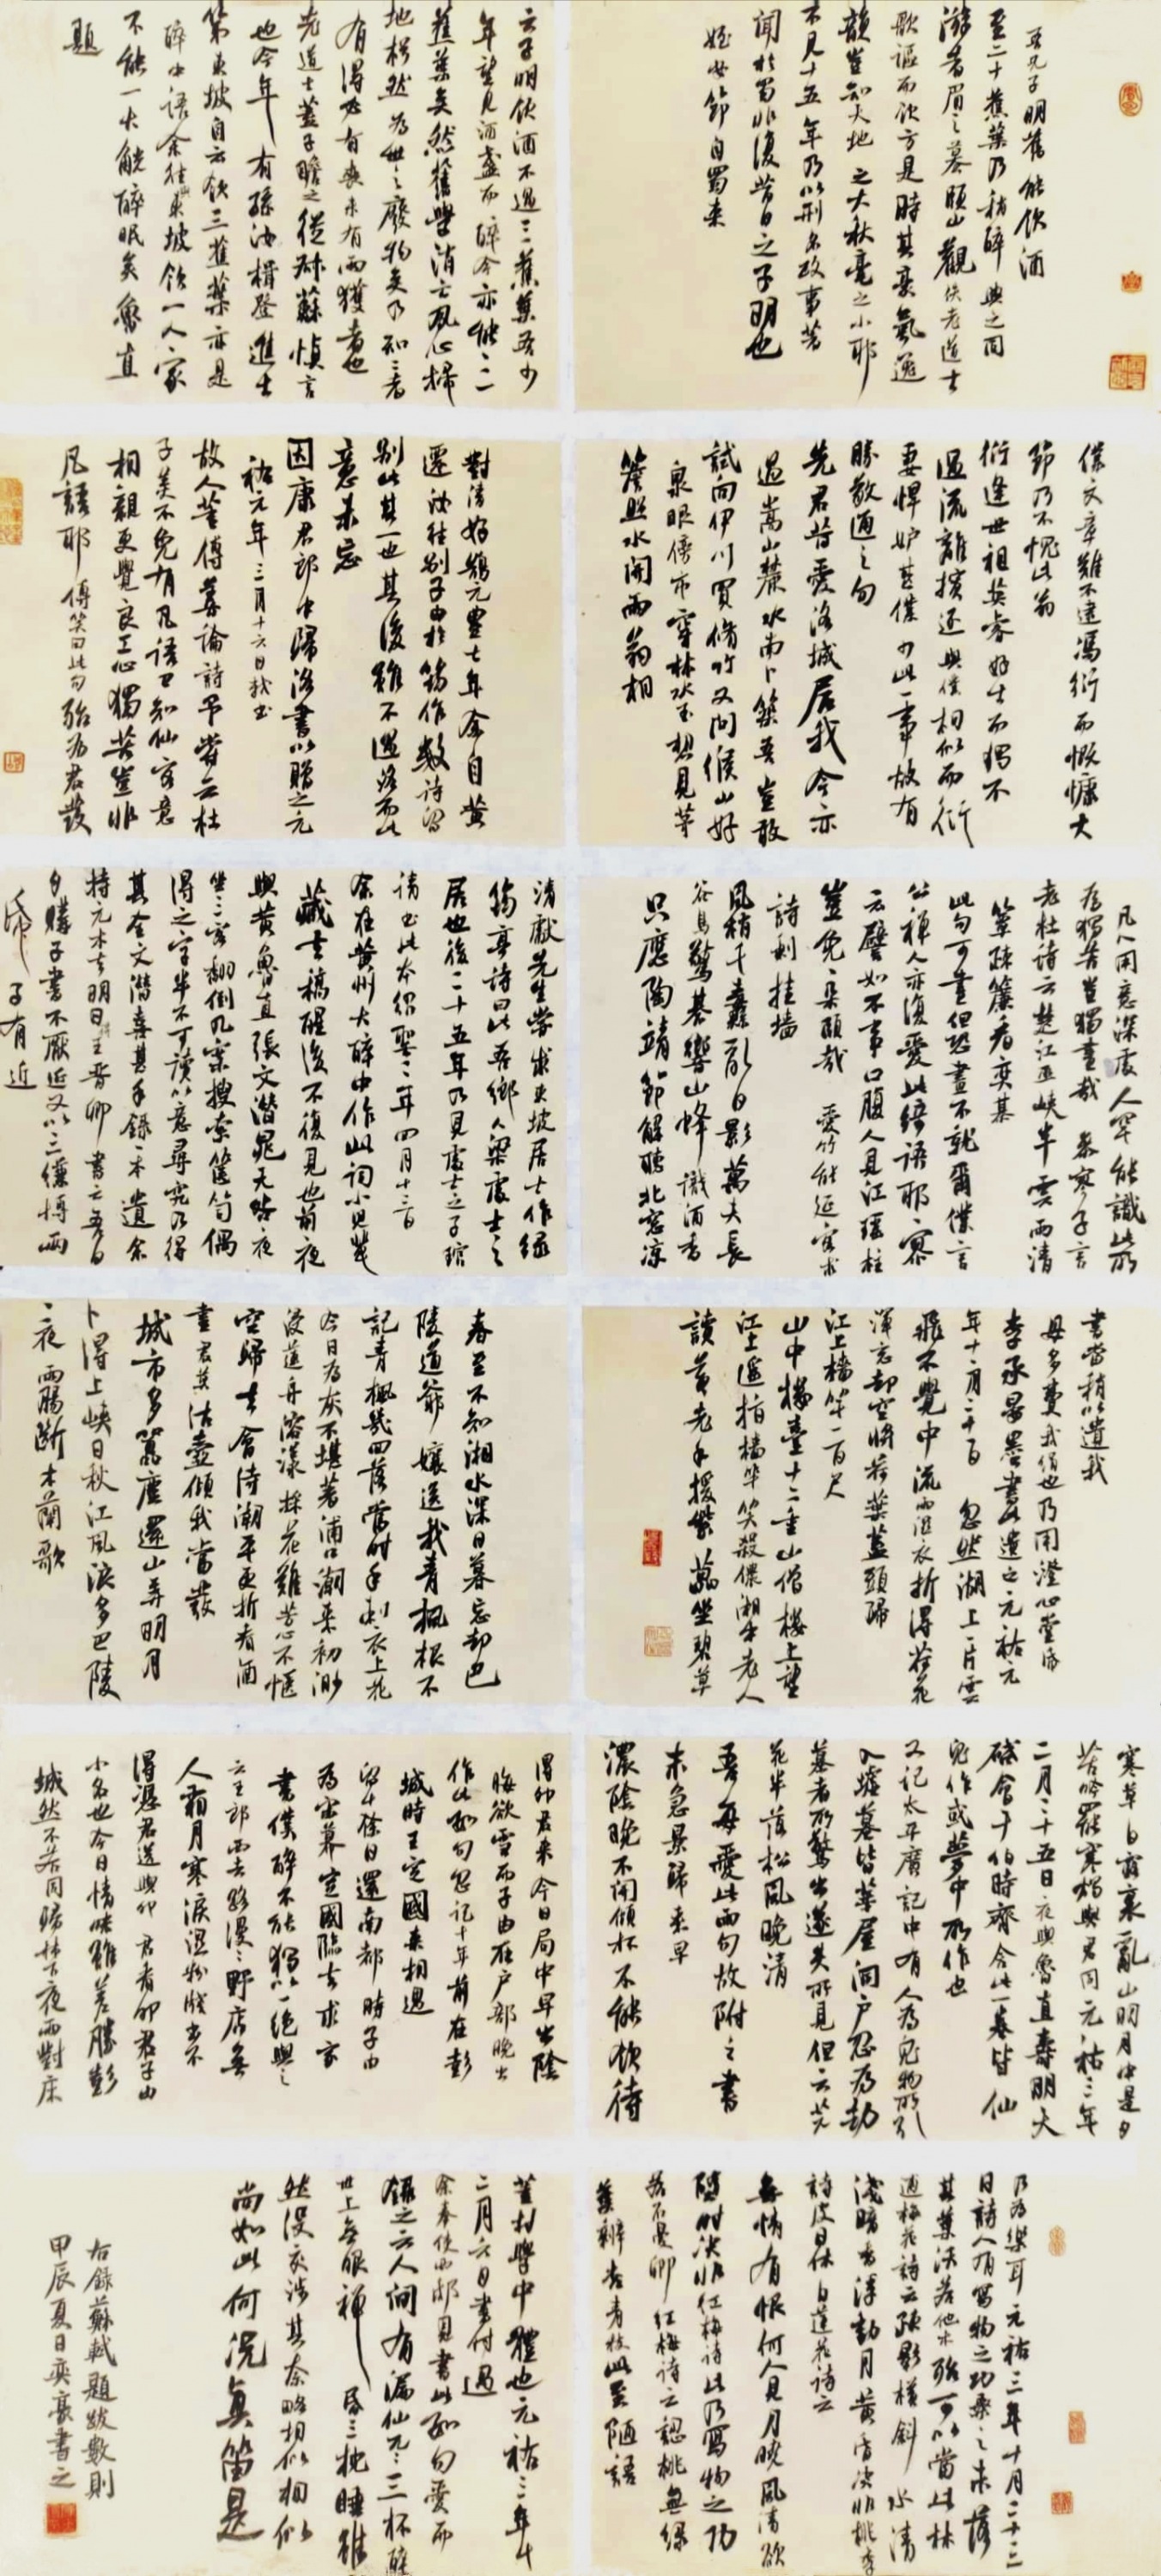 吾兄子明舊能飲酒
至二十蕉葉乃稍醉與之同
游者眉之蟇頤山觀侯老道士
歌謳而飲方是時其豪氣逸
韻豈知天地之大秋毫之小耶
不見十五年乃以刑名政事著
聞於蜀非復昔日之子明也
姪安節自蜀來
云子明飲酒不過三蕉葉吾少
年望見酒盞而醉今亦能三
蕉葉矣然舊學消亡夙心掃
地枵然為世之廢物矣乃知二者
有得必有喪未有兩獲者也
先道士蓋子瞻之從叔蘇慎言
也今年有孫汝楫登進士
第東坡自云飲三蕉葉亦是
醉中語余往與東坡飲一人家
不能一大觥醉眠矣魯直
題
僕文章雖不逮馮衍而慷慨大
節乃不愧此翁
衍逢世祖英睿好士而獨不
遇流離擯逐與僕相似而衍
妻悍妒甚僕少此一事故有
勝敬通之句
先君昔愛洛城居我今亦
過嵩山麓水南卜築吾豈敢
試向伊川買修竹又聞緱山好
泉眼傍市穿林水玉想見茅
簷照水開兩翁相
對清如鵠元豐七年余自黃
遷汝往別子由於筠作數詩留
別此其一也其後雖不過洛而此
意未忘
因康君郎中歸洛書以贈之元
祐元年三月十六日軾書
故人董傳善論詩予嘗云杜
子美不免有凡語已知仙客意
相親更覺良工心獨苦豈非
凡語耶傳笑曰此句殆為君發
凡人用意深處人罕能識此所
為獨苦豈獨畫哉參寥子言
老杜詩云楚江巫峽半雲雨清
簟疎簾看奕棋
此句可畫但恐畫不就爾僕言
公禪人亦復愛此綺語耶寥
云譬如不事口腹人見江瑤柱
豈免一朵頤哉愛竹能延客求
詩剩挂墻
風梢千纛亂日影萬夫長
谷鳥驚棊響山蜂識酒香
只應陶靖節解聽北窓涼
清獻先生嘗求東坡居士作綠
筠亭詩曰此吾鄉人梁處士之
居也後二十五年乃見處士之子琯
請書此本紹聖二年四月十三日
余在黃州大醉中作此詞小兒輩
藏去稿醒後不復見也前夜
與黃魯直張文潛晁无咎夜
坐三客翻倒几案搜索篋笥偶
得之字半不可讀以意尋究乃得
其全文潛喜甚手錄一本遺余
持元本去明日得王晉卿書云吾日
夕購子書不厭近又以三縑博兩
紙子有近
書當稍以遺我
毋多費我絹也乃用澄心堂紙
李承晏墨書此遺之元祐元
年十一月二十日忽然湖上片雲
飛不覺中流雨濕衣折得荷花
渾忘却空將荷葉蓋頭歸
江上檣竿一百尺
山中樓臺十二重山僧樓上望
江上遙指檣竿笑殺儂湘中老人
讀黃老手援紫藟坐碧草
春至不知湘水深日暮忘却巴
陵道爺孃送我青楓根不
記青楓幾回落當時手刺衣上花
今日為灰不堪著浦口潮來初渺
漫蓮舟溶漾採花難芳心不愜
空歸去會待潮平更折看酒
盡君莫沽壺傾我當發
城市多囂塵還山弄明月
卜得上峽日秋江風浪多巴陵
一夜雨腸斷木蘭歌
寒草白露裏亂山明月中是夕
苦吟罷寒燭與君同元祐三年
二月二十五日夜與魯直壽朋天
啟會于伯時齋舍此一卷皆仙
鬼作或夢中所作也
又記太平廣記中有人為鬼物所引
入墟墓皆華屋洞戶忽為劫
墓者所驚出遂失所見但云芫
花半落松風晚清
吾每愛此兩句故附之書
末急景歸來早
濃陰晚不開傾杯不能飲待
得卯君來今日局中早出陰
晦欲雪而子由在戶部晚出
作此數句忽記十年前在彭
城時王定國來相過
留十餘日還南都時子由
為宋幕定國臨去求家
書僕醉不能獨以一絕與之
云王郎西去路漫漫野店無
人霜月寒淚濕粉牋書不
得憑君送與卯君看卯君子由
小名也今日情味雖差勝彭
城然不若同歸林下夜雨對床
乃為樂耳元祐三年十月二十三
日詩人有寫物之功桑之未落
其葉沃若他木殆可以當此林
逋梅花詩云疎影橫斜水清
淺暗香浮動月黃昏決非桃李
詩皮日休白蓮花詩云
無情有恨何人見月曉風清欲
墮時決非紅梅詩此乃寫物之功
若石曼卿紅梅詩云認桃無綠
葉辨杏有青枝此至陋語
蓋村學中體也元祐三年十
二月六日書付過
余奉使西邸見書此數句愛而
錄之云人間有漏仙兀兀三杯醉
世上無眼禪昏昏一枕睡雖
然沒交涉其奈略相似相似
尚如此何況真箇是
右錄蘇軾題跋數則
甲辰夏日奕豪書之